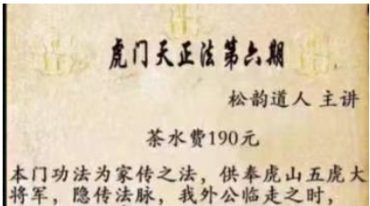 虎门天正法第六期
松韵道人 主讲
茶水费190元
本门功法为家传之法，供奉虎山五虎大
将军，隐传法脉，我外公临走之时，